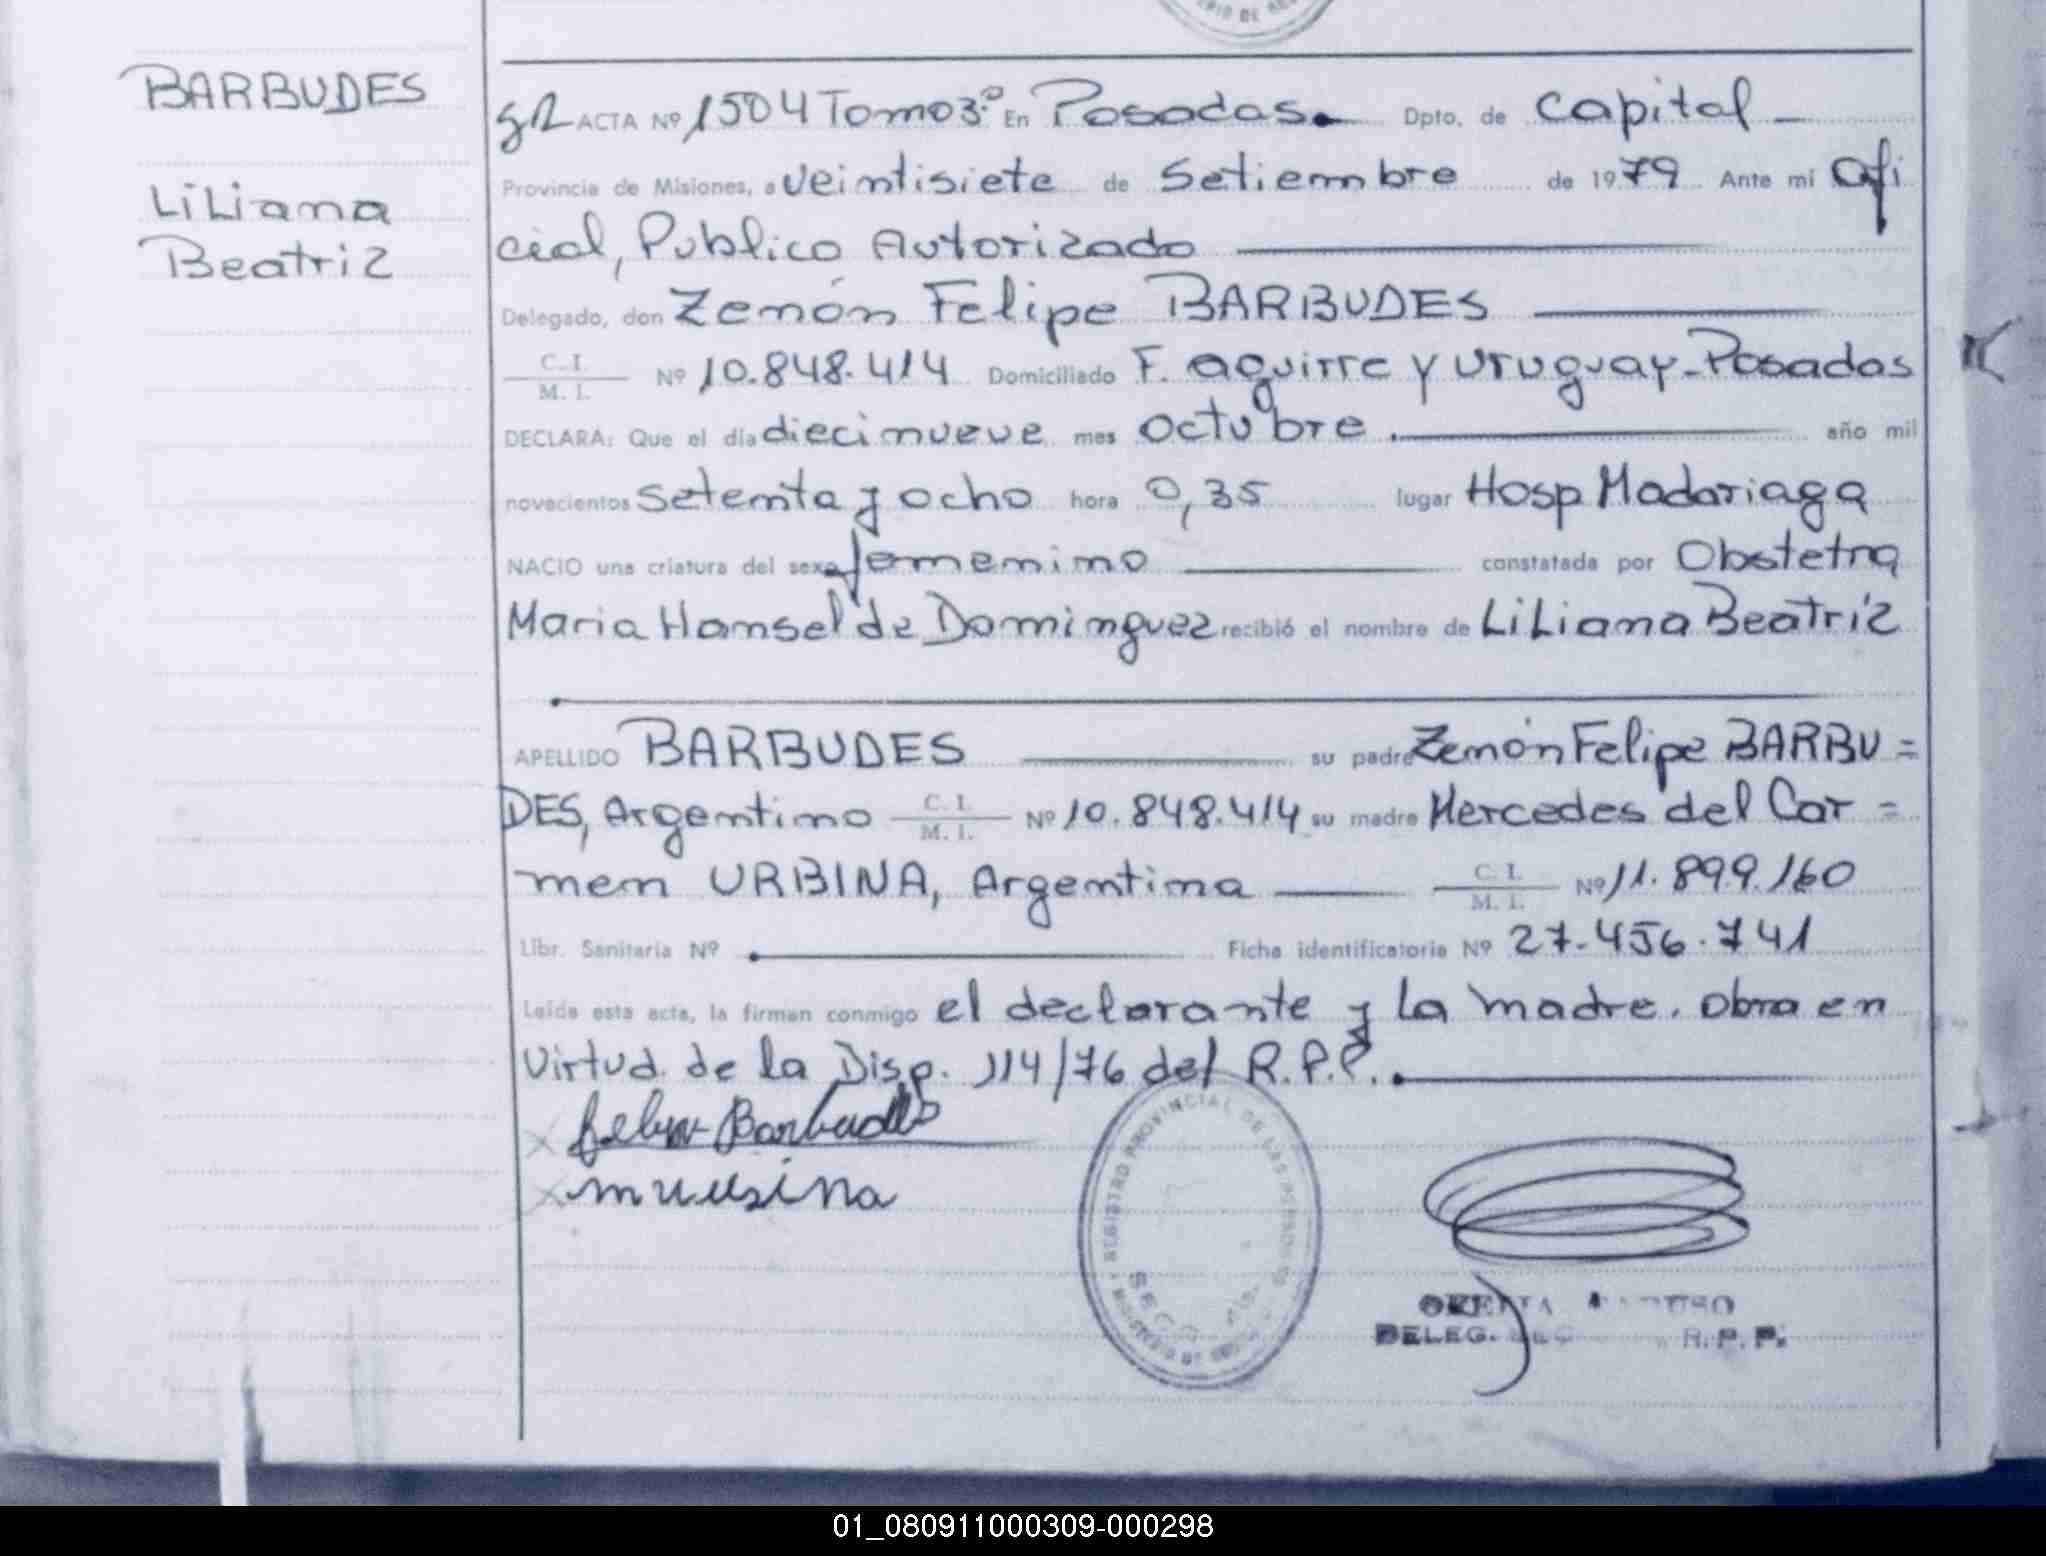 BARBUDES
LiLiana
Beatriz
ACTA Nº 1504 Tomo 3.º En Posadas. Dpto. de Capital
Provincia de Misiones, a veintisiete de Setiembre de 1979 Ante mi Ofi
cial, Publico Autorizado
Delegado, don Zenón Felipe BARBUDES
C. I.
M. I.
Nº 10.848.414 Domiciliado F. aguirre y uruguay-Posadas
DECLARA: Que el día diecinueve mes octubre. año mil
novecientos setenta y ocho hora 0,35 lugar Hosp Madariaga
NACIO una criatura del sexo femenino constatada por Obstetra
Maria Hansel de Dominguez recibió el nombre de LiLiana Beatriz
APELLIDO BARBUDES su padre Zenón Felipe BARBU=
DES, Argentino C. I. M. I. Nº 10.848.414 su madre Mercedes del Car=
men URBINA, Argentina C. I. M. I. Nº 11.899.160
Libr. Sanitaria Nº Ficha identificatoria Nº 27.456.741
Leída esta acta, la firman conmigo el declarante y la madre. Obra en
Virtud de la Disp. 114/76 del R.P.P.
Barbudes
REGISTRO PROVINCIAL DE LAS PERSONAS
MINISTERIO DE
DELEG. R.P.P.
01_080911000309-000298